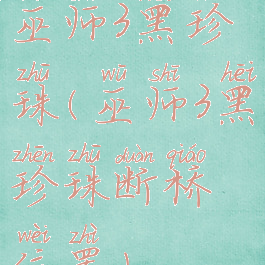 巫师3黑珍
zhū wū shī hēi
珠(巫师3黑
zhēn zhū duàn qiáo
珍珠断桥
wèi zhì
位置)